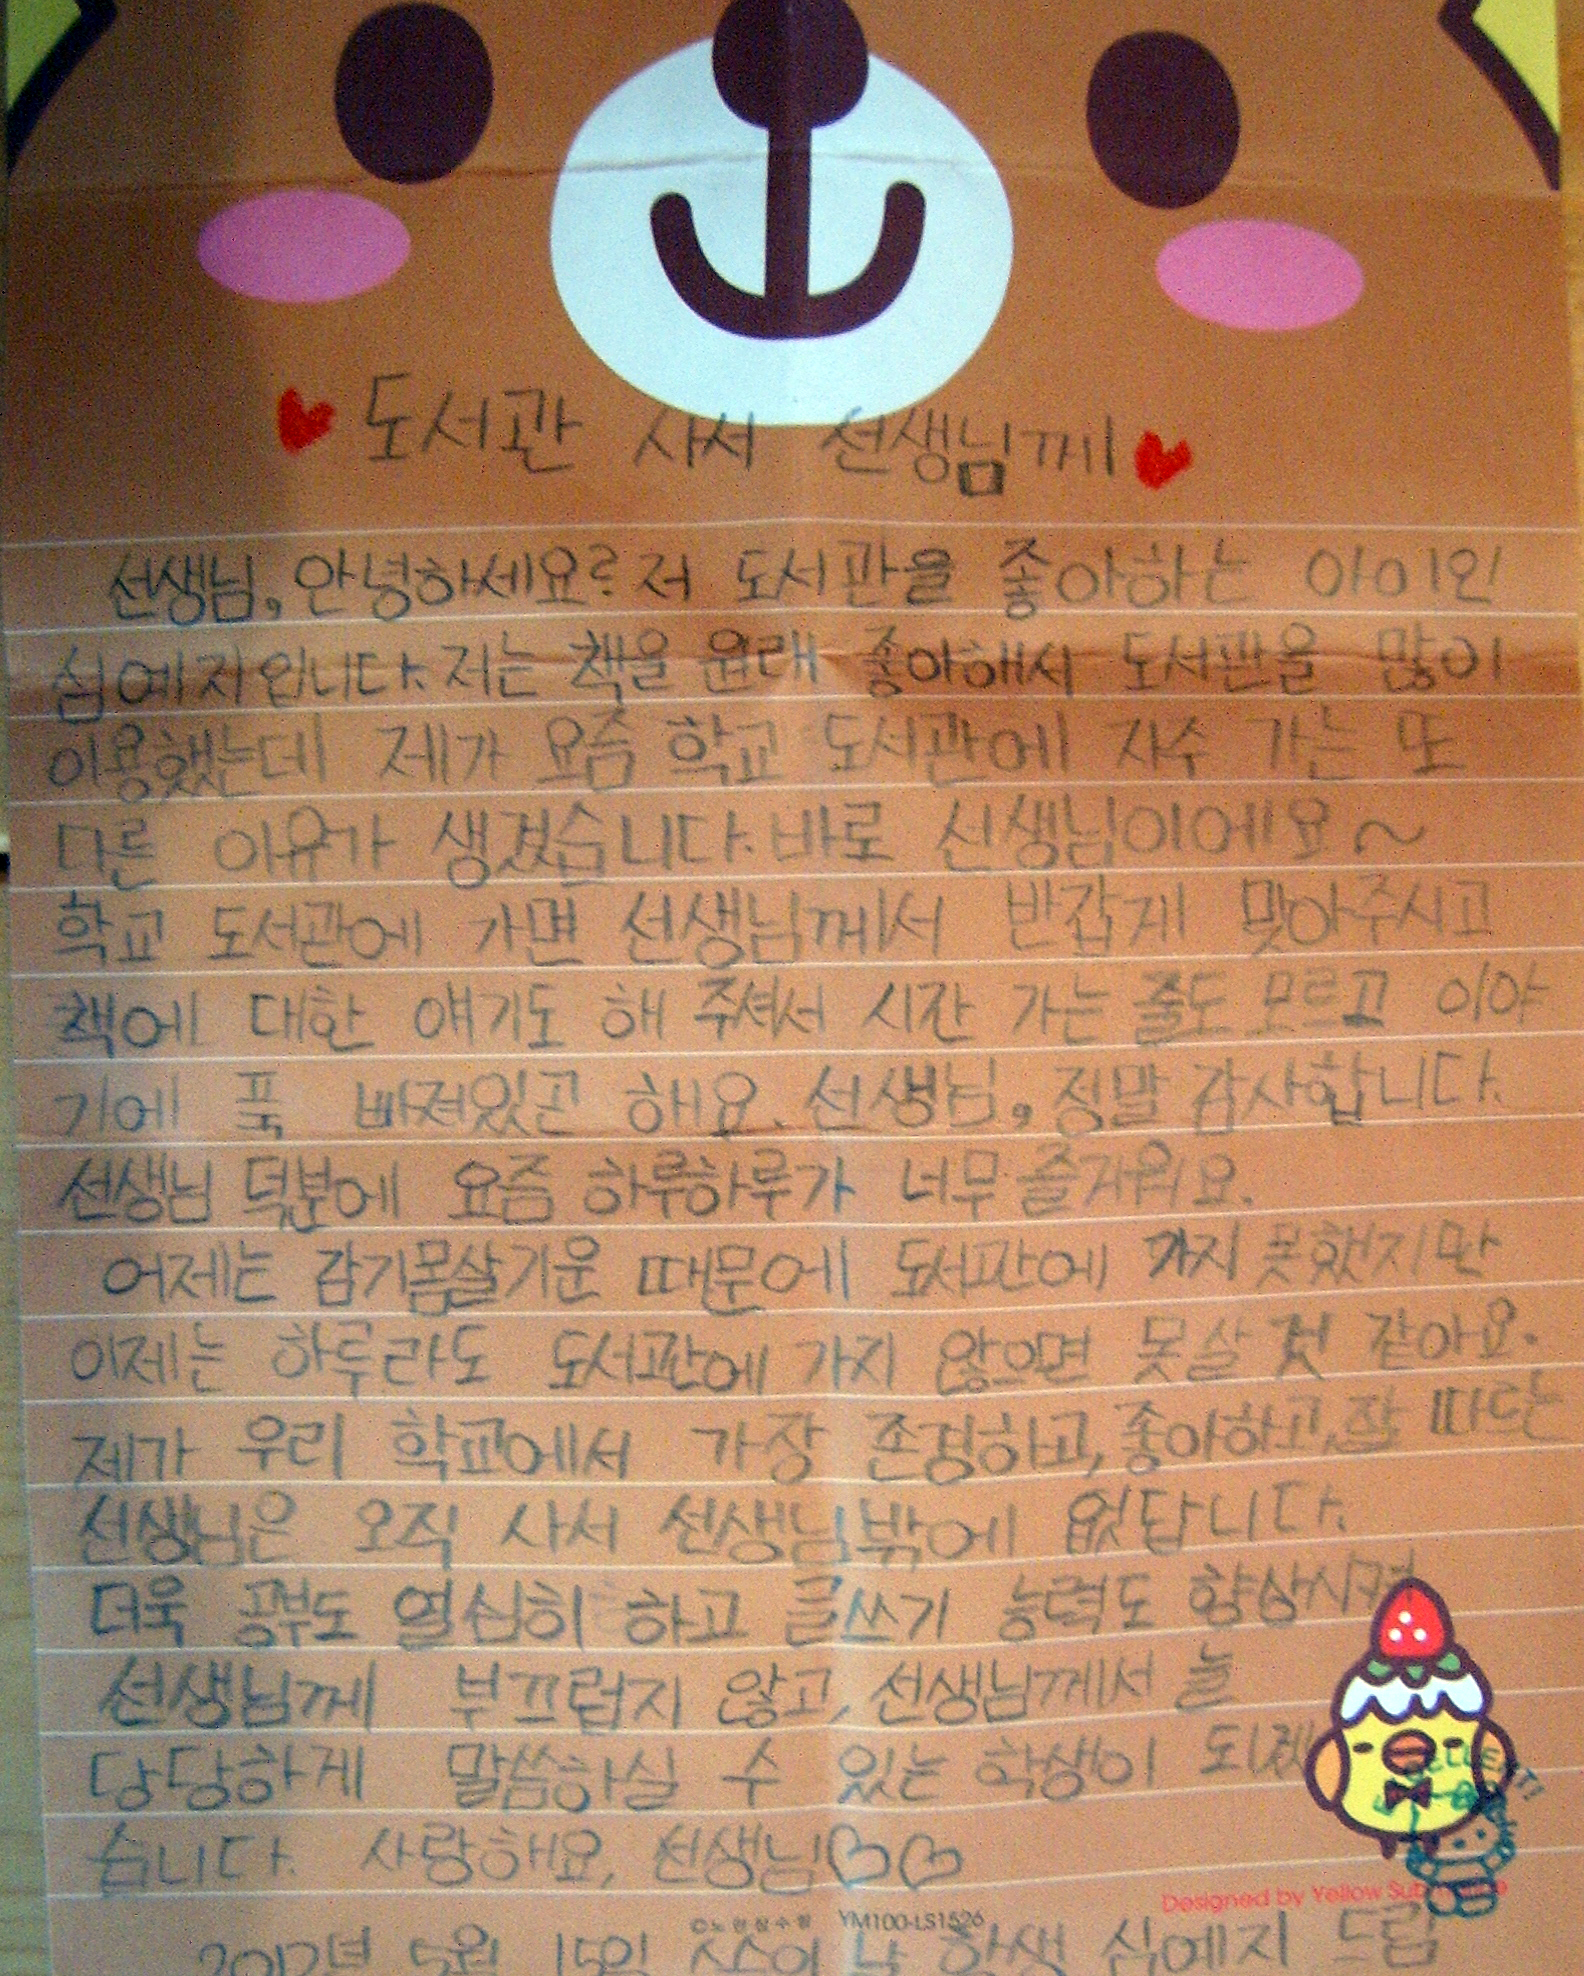 도서관 사서 선생님께
선생님, 안녕하세요? 저 도서관을 좋아하는 아이인
심예지입니다. 저는 책을 원래 좋아해서 도서관을 많이
이용했는데 제가 요즘 학교 도서관에 자주 가는 또
다른 이유가 생겼습니다. 바로 선생님이에요~
학교 도서관에 가면 선생님께서 반갑게 맞아주시고
책에 대한 얘기도 해 주셔서 시간 가는 줄도 모르고 이야
기에 푹 빠져있곤 해요. 선생님, 정말 감사합니다.
선생님 덕분에 요즘 하루하루가 너무 즐거워요.
어제는 감기몸살기운 때문에 도서관에 가지 못했지만
이제는 하루라도 도서관에 가지 않으면 못살 것 같아요.
제가 우리 학교에서 가장 존경하고, 좋아하고, 잘 따르는
선생님은 오직 사서 선생님밖에 없답니다.
더욱 공부도 열심히 하고 글쓰기 능력도 향상시켜
선생님께 부끄럽지 않고, 선생님께서 늘
당당하게 말씀하실 수 있는 학생이 되겠
습니다. 사랑해요, 선생님♡♡
Designed by Yellow Submarine
©노란잠수함 YM100-LS1526
2012년 5월 15일 스승의 날 학생 심예지 드림